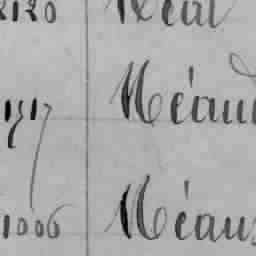 2120 Réal
1717 Méaud
1006 Méaus